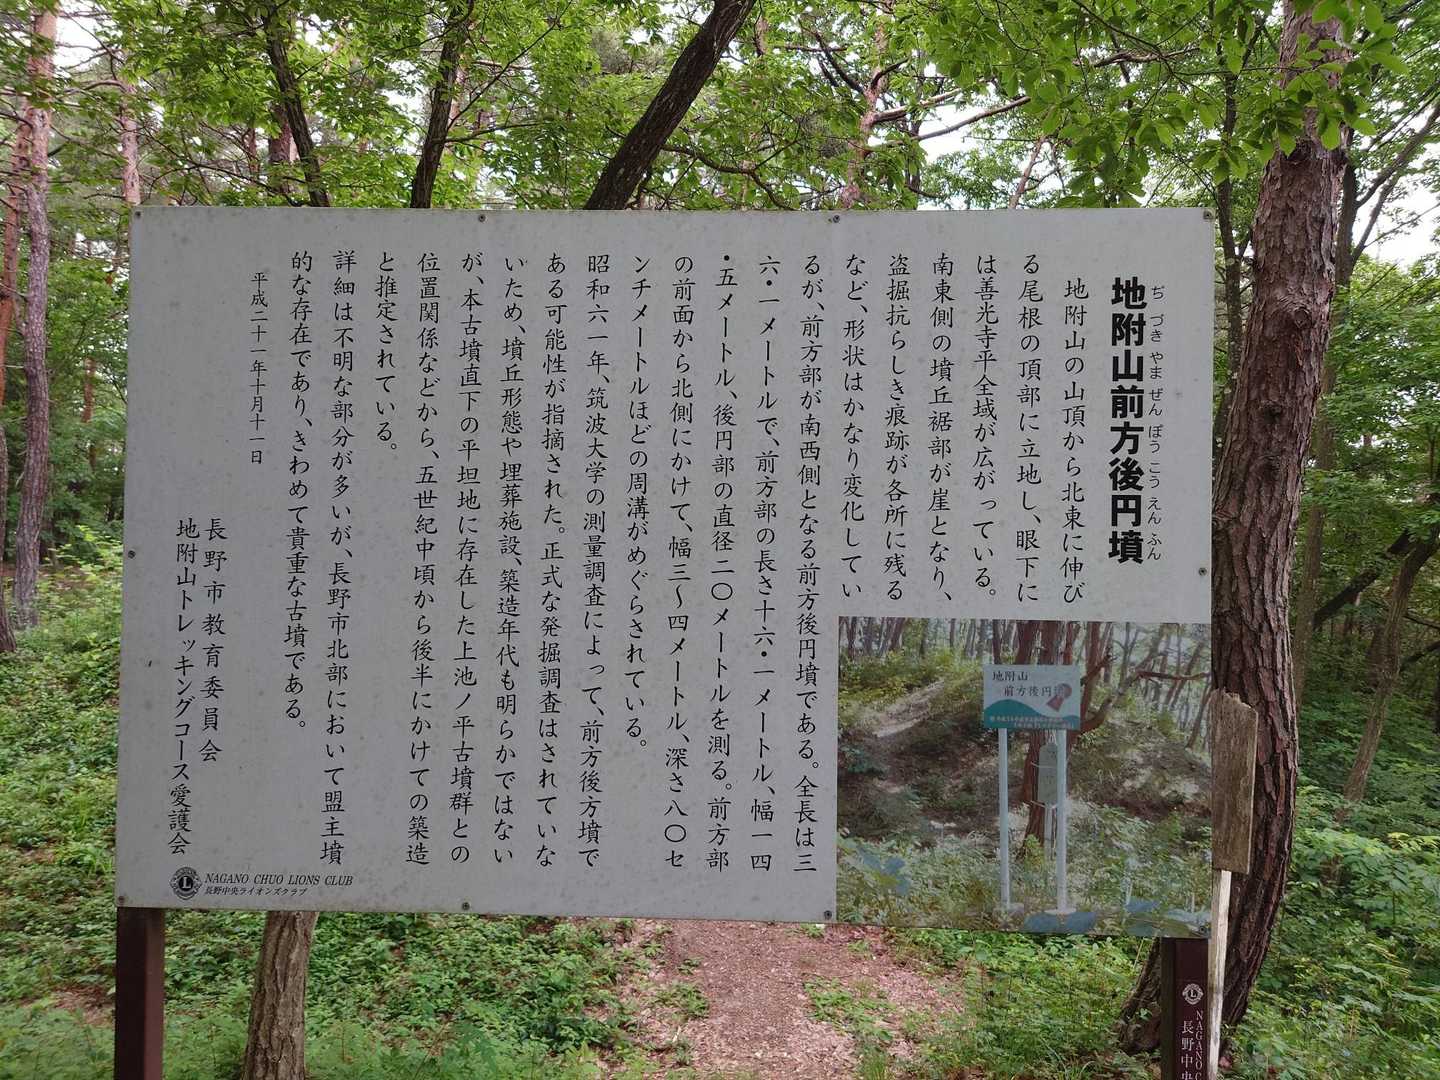 地附山前方後円墳
ぢづきやまぜんぽうこうえんふん
地附山の山頂から北東に伸び
る尾根の頂部に立地し、眼下に
は善光寺平全域が広がっている。
南東側の墳丘裾部が崖となり、
盗掘抗らしき痕跡が各所に残る
など、形状はかなり変化してい
るが、前方部が南西側となる前方後円墳である。全長は三
六・一メートルで、前方部の長さ十六・一メートル、幅一四
・五メートル、後円部の直径二〇メートルを測る。前方部
の前面から北側にかけて、幅三〜四メートル、深さ八〇セ
ンチメートルほどの周溝がめぐらされている。
昭和六一年、筑波大学の測量調査によって、前方後方墳で
ある可能性が指摘された。正式な発掘調査はされていな
いため、墳丘形態や埋葬施設、築造年代も明らかではない
が、本古墳直下の平坦地に存在した上池ノ平古墳群との
位置関係などから、五世紀中頃から後半にかけての築造
と推定されている。
詳細は不明な部分が多いが、長野市北部において盟主墳
的な存在であり、きわめて貴重な古墳である。
平成二十一年十月十一日
長野市教育委員会
地附山トレッキングコース愛護会
NAGANO CHUO LIONS CLUB
長野中央ライオンズクラブ
地附山
前方後円墳
NAGANO C
長野中央